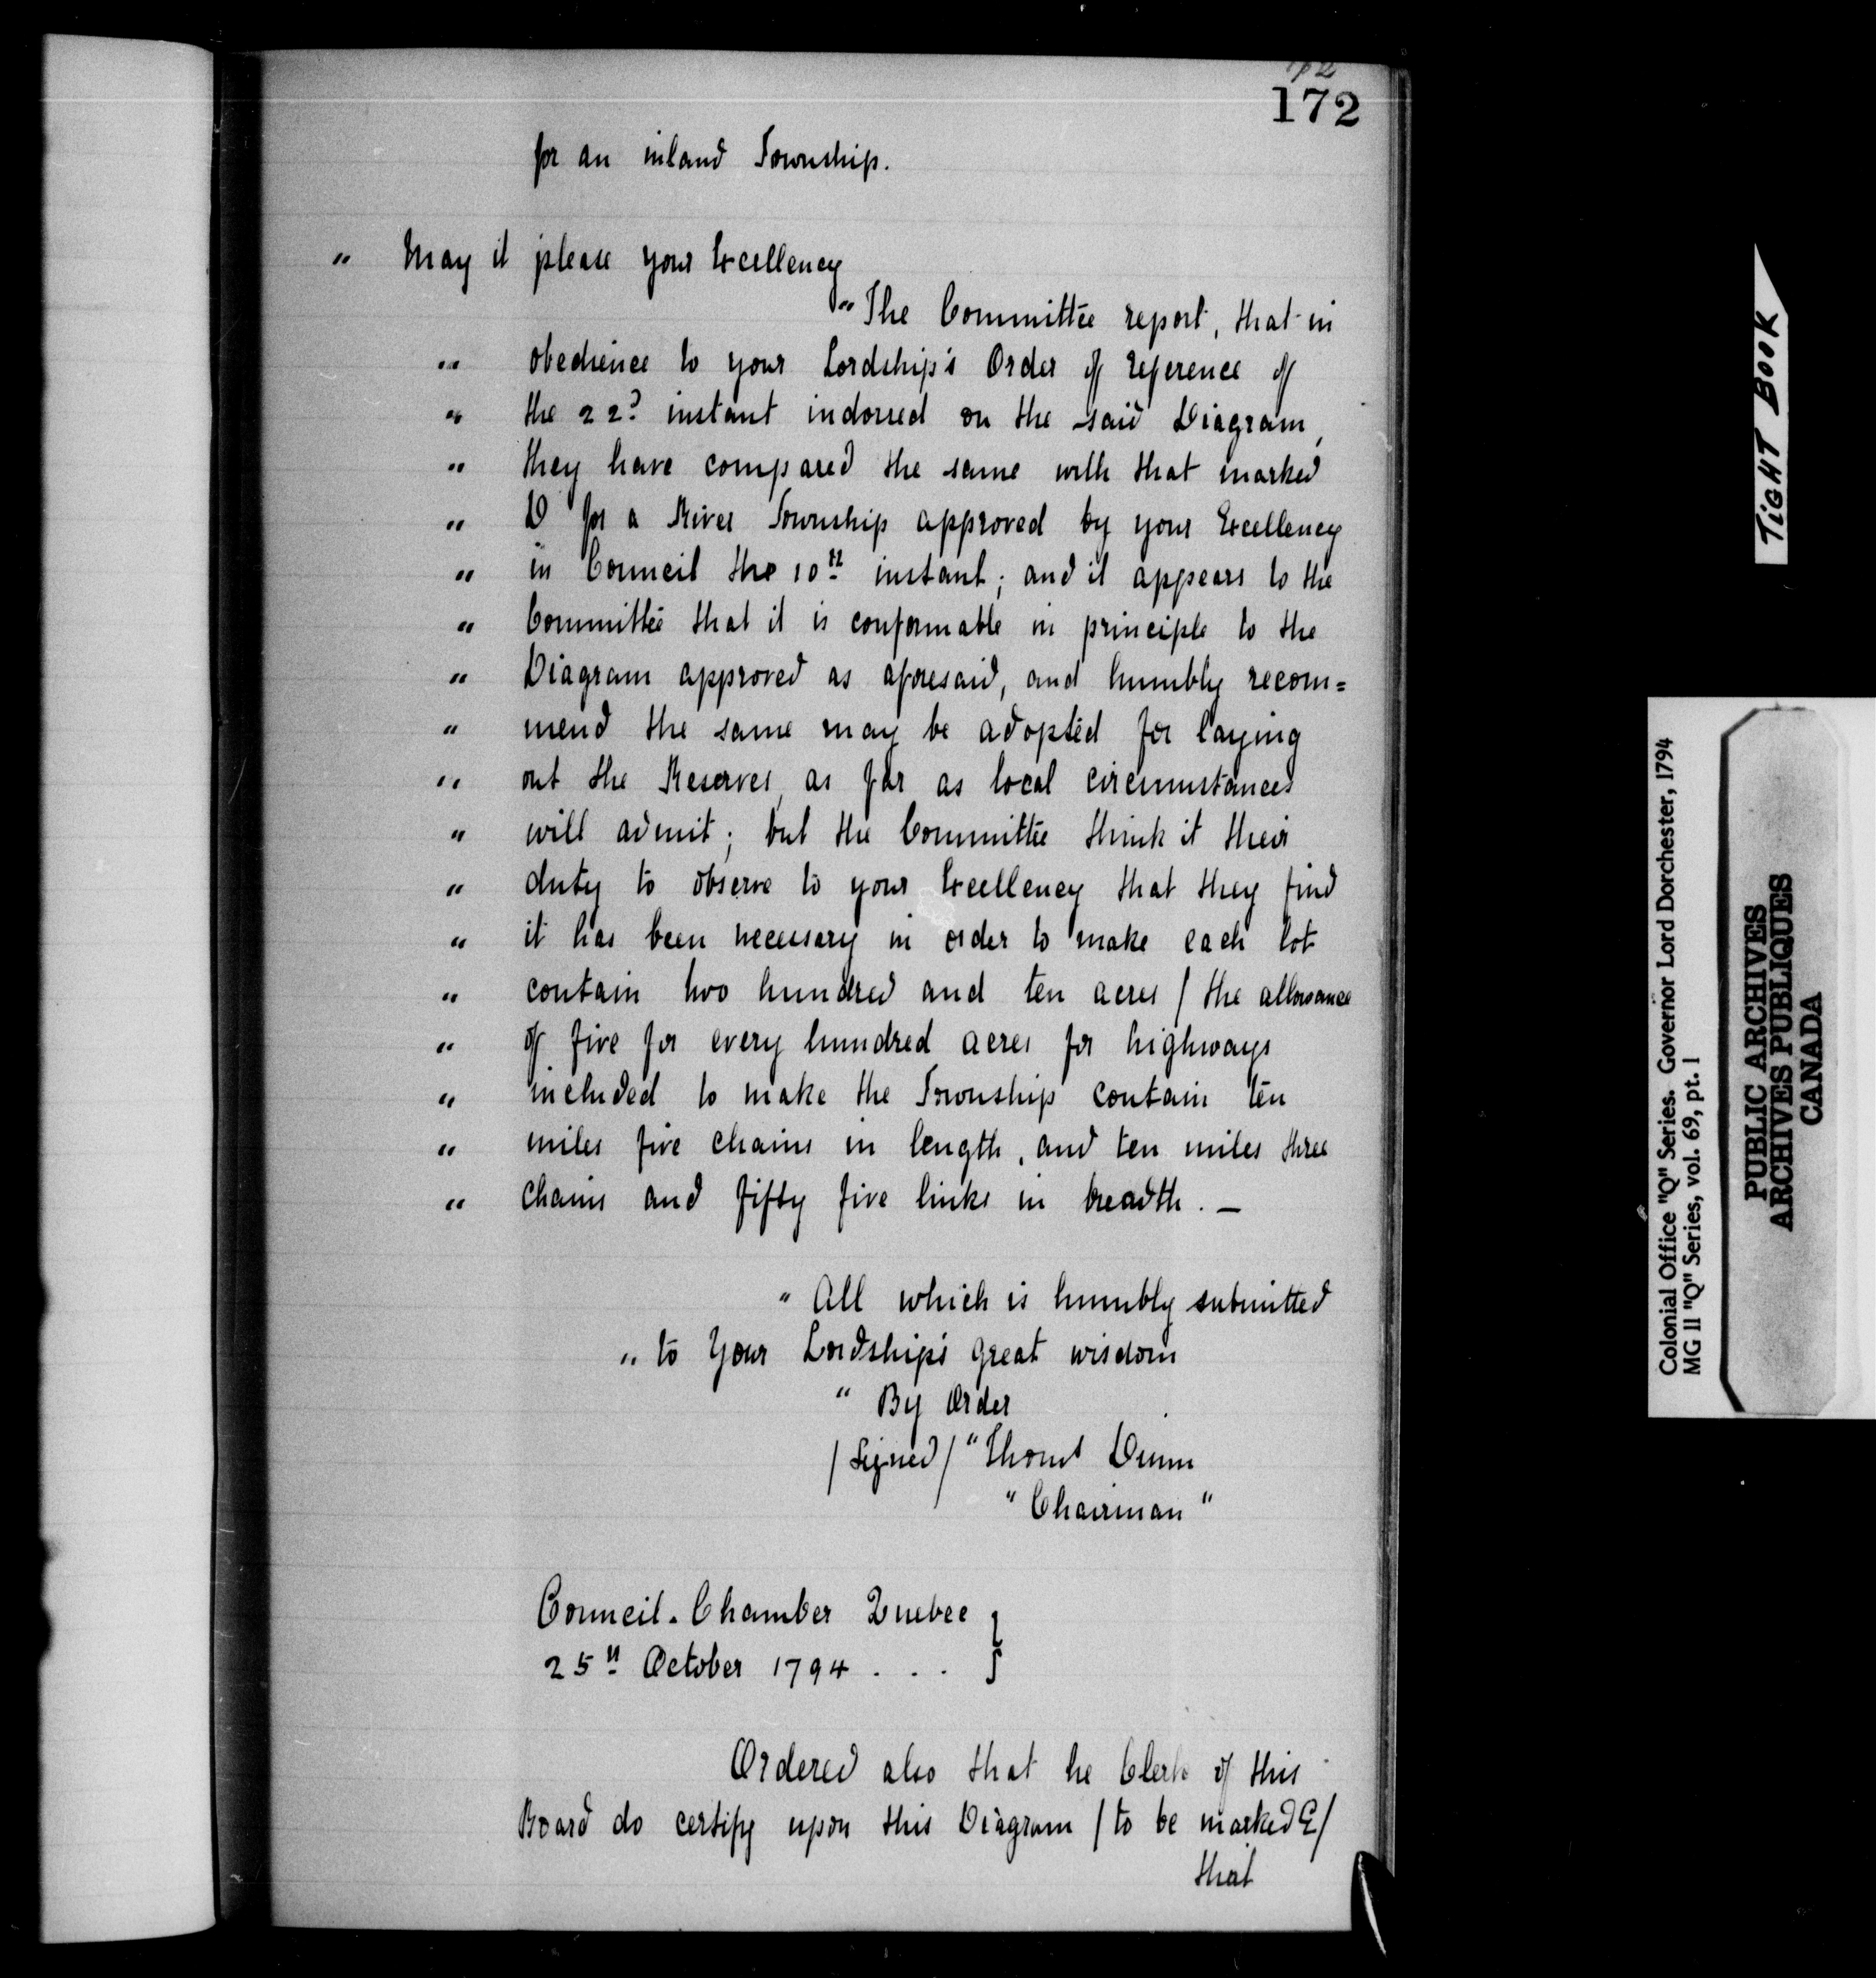 172
for an inland Township.
" May it please your Excellency
" The Committee report, that in
" obedience to your Lordship's Order of reference of
" the 22d instant indorsed on the said Diagram,
" they have compared the same with that marked
" D for a River Township approved by your Excellency
" in Council the 10th instant; and it appears to the
" Committee that it is conformable in principle to the
" Diagram approved as aforesaid, and humbly recom=
" mend the same may be adopted for laying
" out the Reserves, as far as local circumstances
" will admit; but the Committee think it their
" duty to observe to your Excellency that they find
" it has been necessary in order to make each lot
" contain two hundred and ten acres / the allowance
" of five for every hundred acres for highways
" included to make the Township contain ten
" miles five chains in length, and ten miles three
" chains and fifty five links in breadth. —
" All which is humbly submitted
" to Your Lordship's great wisdom
" By Order
/ Signed / " Thoms Dunn
" Chairman "
Council-Chamber Quebec }
25th October 1794 . . . }
Ordered also that he Clerk of this
Board do certify upon this Diagram / to be marked E /
that
TIGHT BOOK
Colonial Office "Q" Series. Governor Lord Dorchester, 1794
MG 11 "Q" Series, vol. 69, pt. 1
PUBLIC ARCHIVES
ARCHIVES PUBLIQUES
CANADA